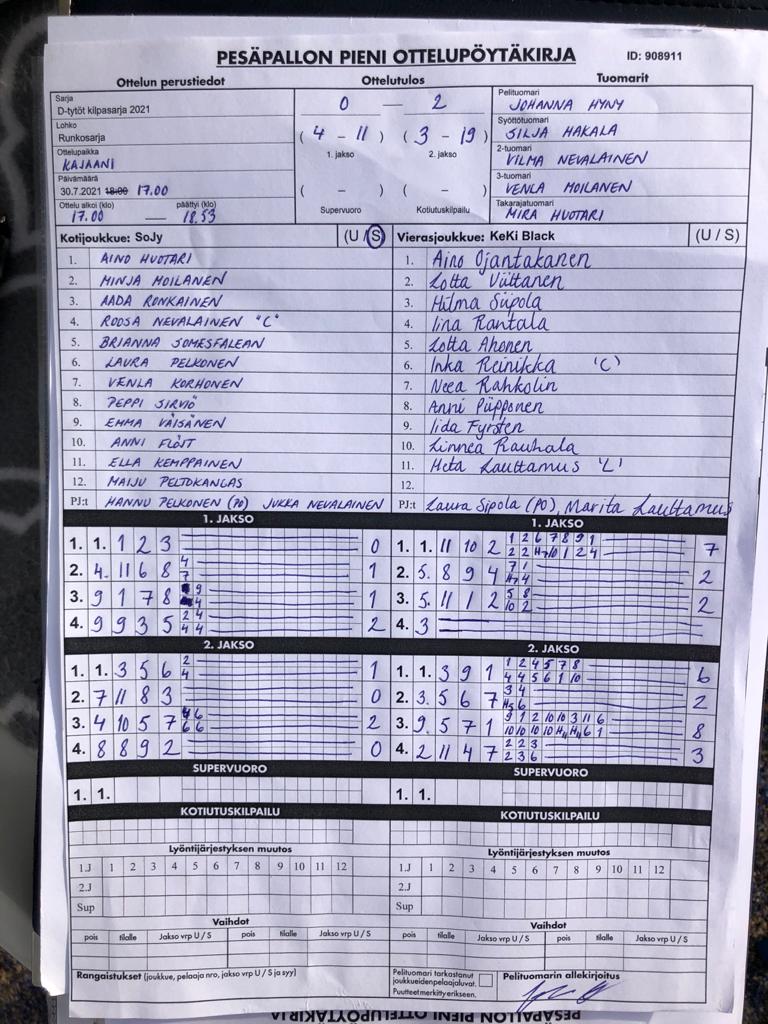 PESÄPALLON PIENI OTTELUPÖYTÄKIRJA ID: 908911
Ottelun perustiedot Ottelutulos Tuomarit
Sarja
D-tytöt kilpasarja 2021
Lohko
Runkosarja
Ottelupaikka
KAJAANI
Päivämäärä
30.7.2021 18:00 17.00
Ottelu alkoi (klo) päättyi (klo)
17.00 — 18.53
0 — 2
( 4 - 11 ) ( 3 - 19 )
1. jakso 2. jakso
( - ) ( - )
Supervuoro Kotiutuskilpailu
Pelituomari
JOHANNA HYNY
Syöttötuomari
SILJA HAKALA
2-tuomari
VILMA NEVALAINEN
3-tuomari
VENLA MOILANEN
Takarajatuomari
MIRA HUOTARI
Kotijoukkue: SoJy (U / S)
1. AINO HUOTARI
2. MINJA MOILANEN
3. AADA RONKAINEN
4. ROOSA NEVALAINEN "C"
5. BRIANNA JOMESFALEAN
6. LAURA PELKONEN
7. VENLA KORHONEN
8. PEPPI SIRVIÖ
9. EMMA VÄISÄNEN
10. ANNI FLÖJT
11. ELLA KEMPPAINEN
12. MAIJU PELTOKANGAS
PJ:t HANNU PELKONEN (PO) JUKKA NEVALAINEN
Vierasjoukkue: KeKi Black (U / S)
1. Aino Ojantakanen
2. Lotta Viittanen
3. Hilma Siipola
4. Iina Rantala
5. Lotta Ahonen
6. Inka Reinikka 'C'
7. Neea Rahkolin
8. Anni Piipponen
9. Iida Fyrsten
10. Linnea Rauhala
11. Heta Lauttamus 'L'
12.
PJ:t Laura Sipola (PO), Marita Lauttamus
1. JAKSO
1. 1. 1 2 3 0
2. 4. 11 6 8 4 7 1
3. 9 1 7 8 9 4 1
4. 9 9 3 5 2 4 4 4 2
2. JAKSO
1. 1. 3 5 6 2 4 1
2. 7 11 8 3 0
3. 4 10 5 7 6 6 6 2
4. 8 8 9 2 0
SUPERVUORO
1. 1.
KOTIUTUSKILPAILU
Lyöntijärjestyksen muutos
1.J 1 2 3 4 5 6 7 8 9 10 11 12
2.J
Sup
Vaihdot
pois tilalle Jakso vrp U / S pois tilalle Jakso vrp U / S
Rangaistukset (joukkue, pelaaja nro, jakso vrp U / S ja syy)
1. JAKSO
1. 1. 11 10 2 1 2 6 7 8 9 1 7
2 2 H7 10 1 2 4
2. 5. 8 9 4 7 1 2
H7 4
3. 5. 11 1 2 5 8 2
10 2
4. 3
2. JAKSO
1. 1. 3 9 1 1 2 4 5 7 8 6
4 4 5 6 1 10
2. 3. 5 6 7 3 4 2
H5 6
3. 9. 5 7 1 9 1 2 10 10 3 11 6 8
10 10 10 10 H11 H11 6 1
4. 2 11 4 7 2 2 3 3
2 3 6
SUPERVUORO
1. 1.
KOTIUTUSKILPAILU
Lyöntijärjestyksen muutos
1.J 1 2 3 4 5 6 7 8 9 10 11 12
2.J
Sup
Vaihdot
pois tilalle Jakso vrp U / S pois tilalle Jakso vrp U / S
Pelituomari tarkastanut
joukkueidenpelaajaluvat.
Puutteet merkitty erikseen.
Pelituomarin allekirjoitus
PESÄPALLON PIENI OTTELUPÖYTÄKIRJA